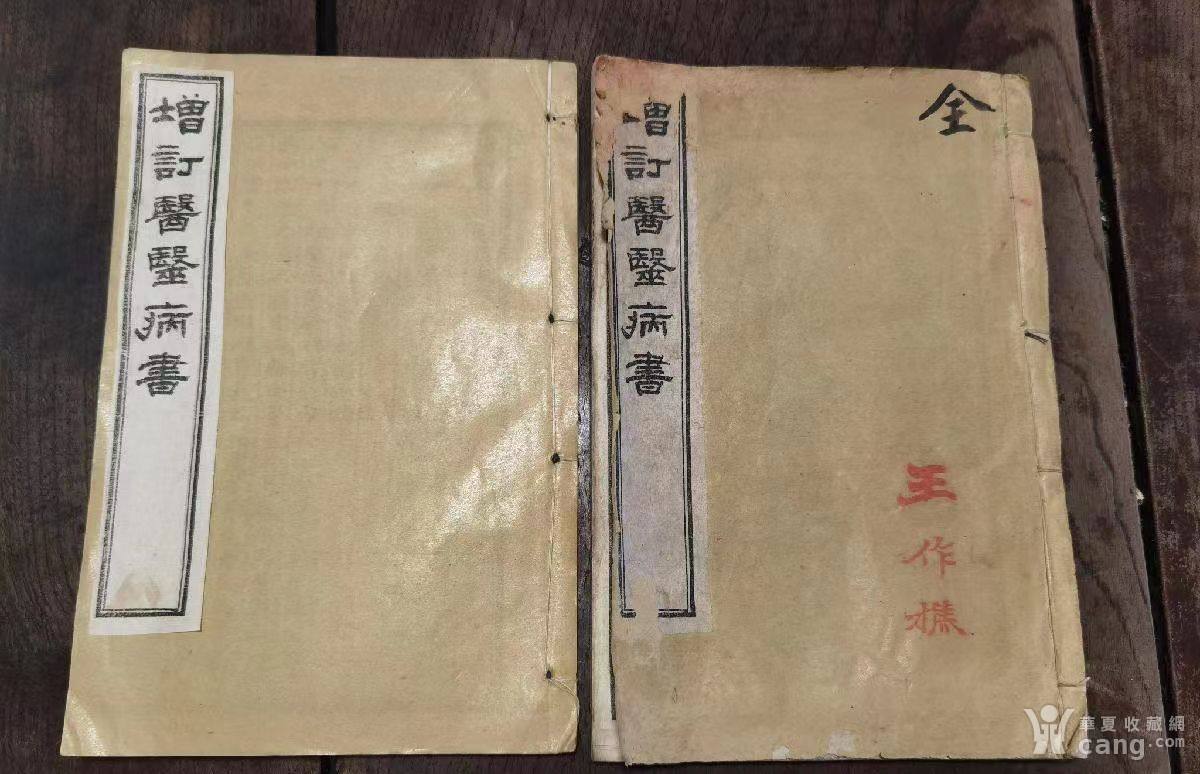 增訂醫醫病書
增訂醫醫病書
全
王作樵
華夏收藏網
cang.com